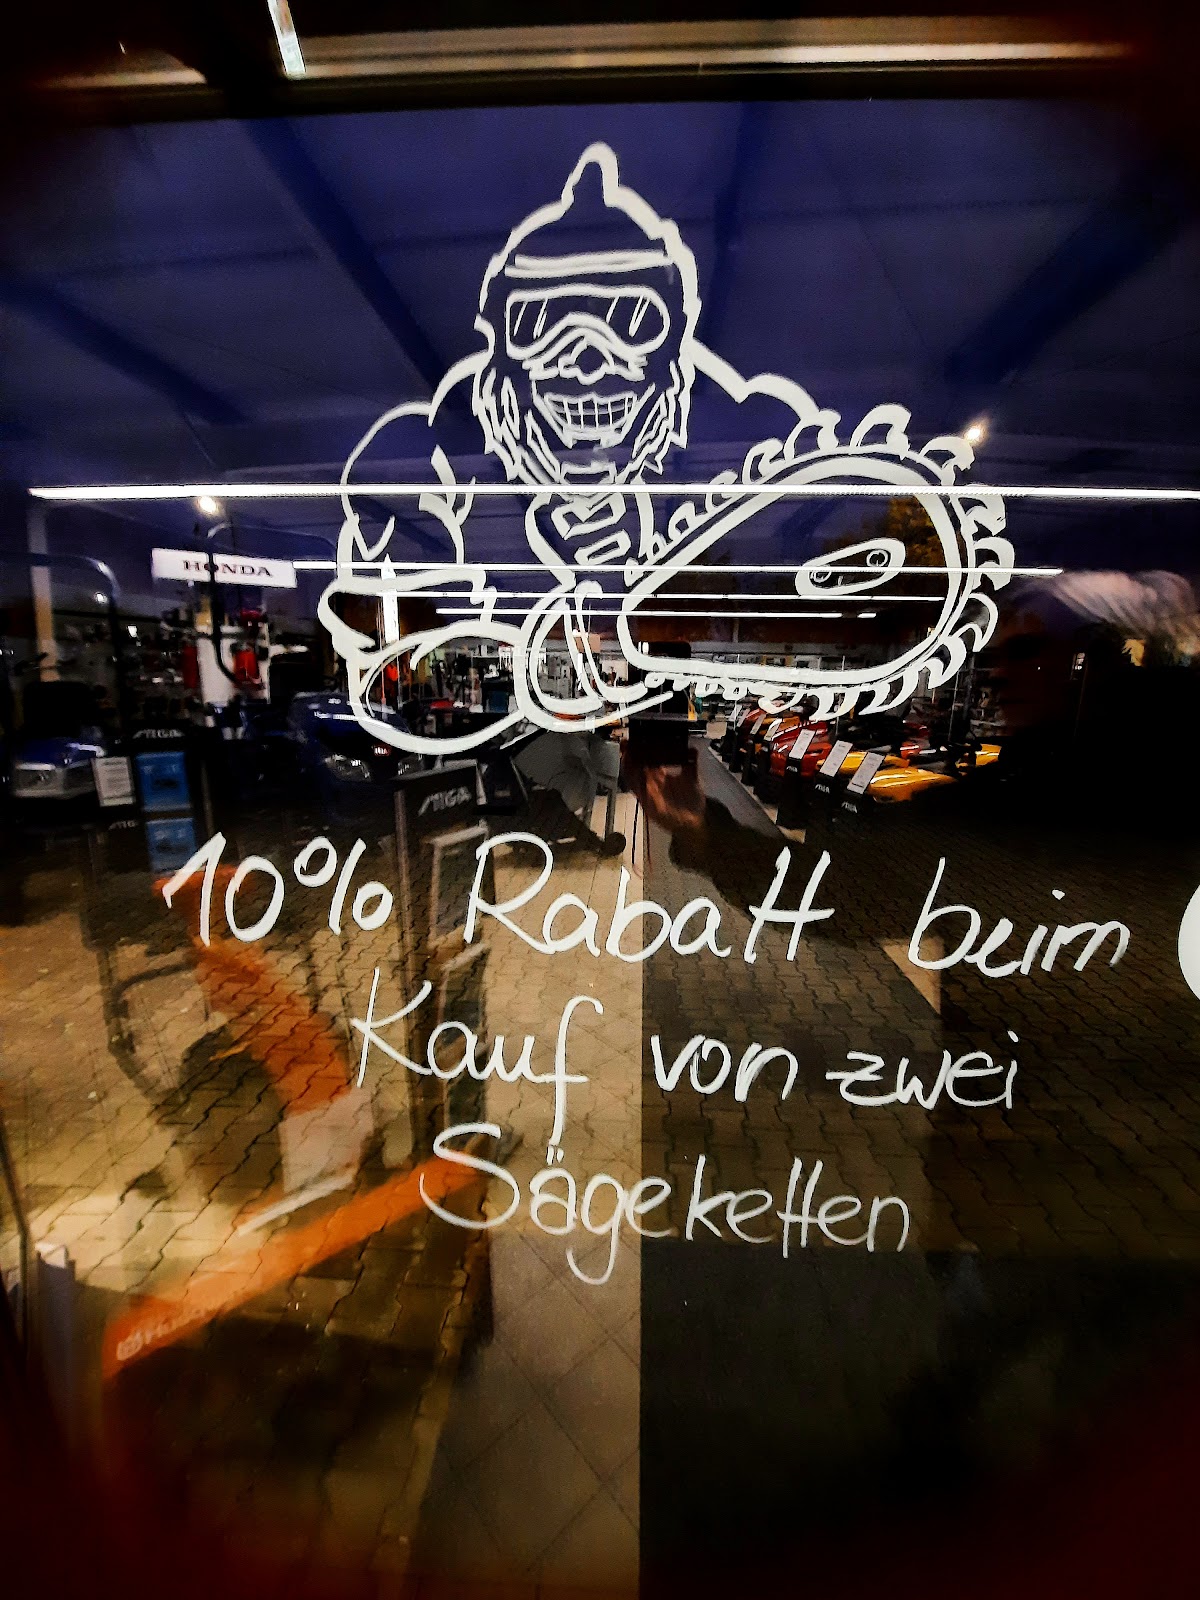 HONDA
STIGA
STIGA
10% Rabatt beim
Kauf von zwei
Sägeketten